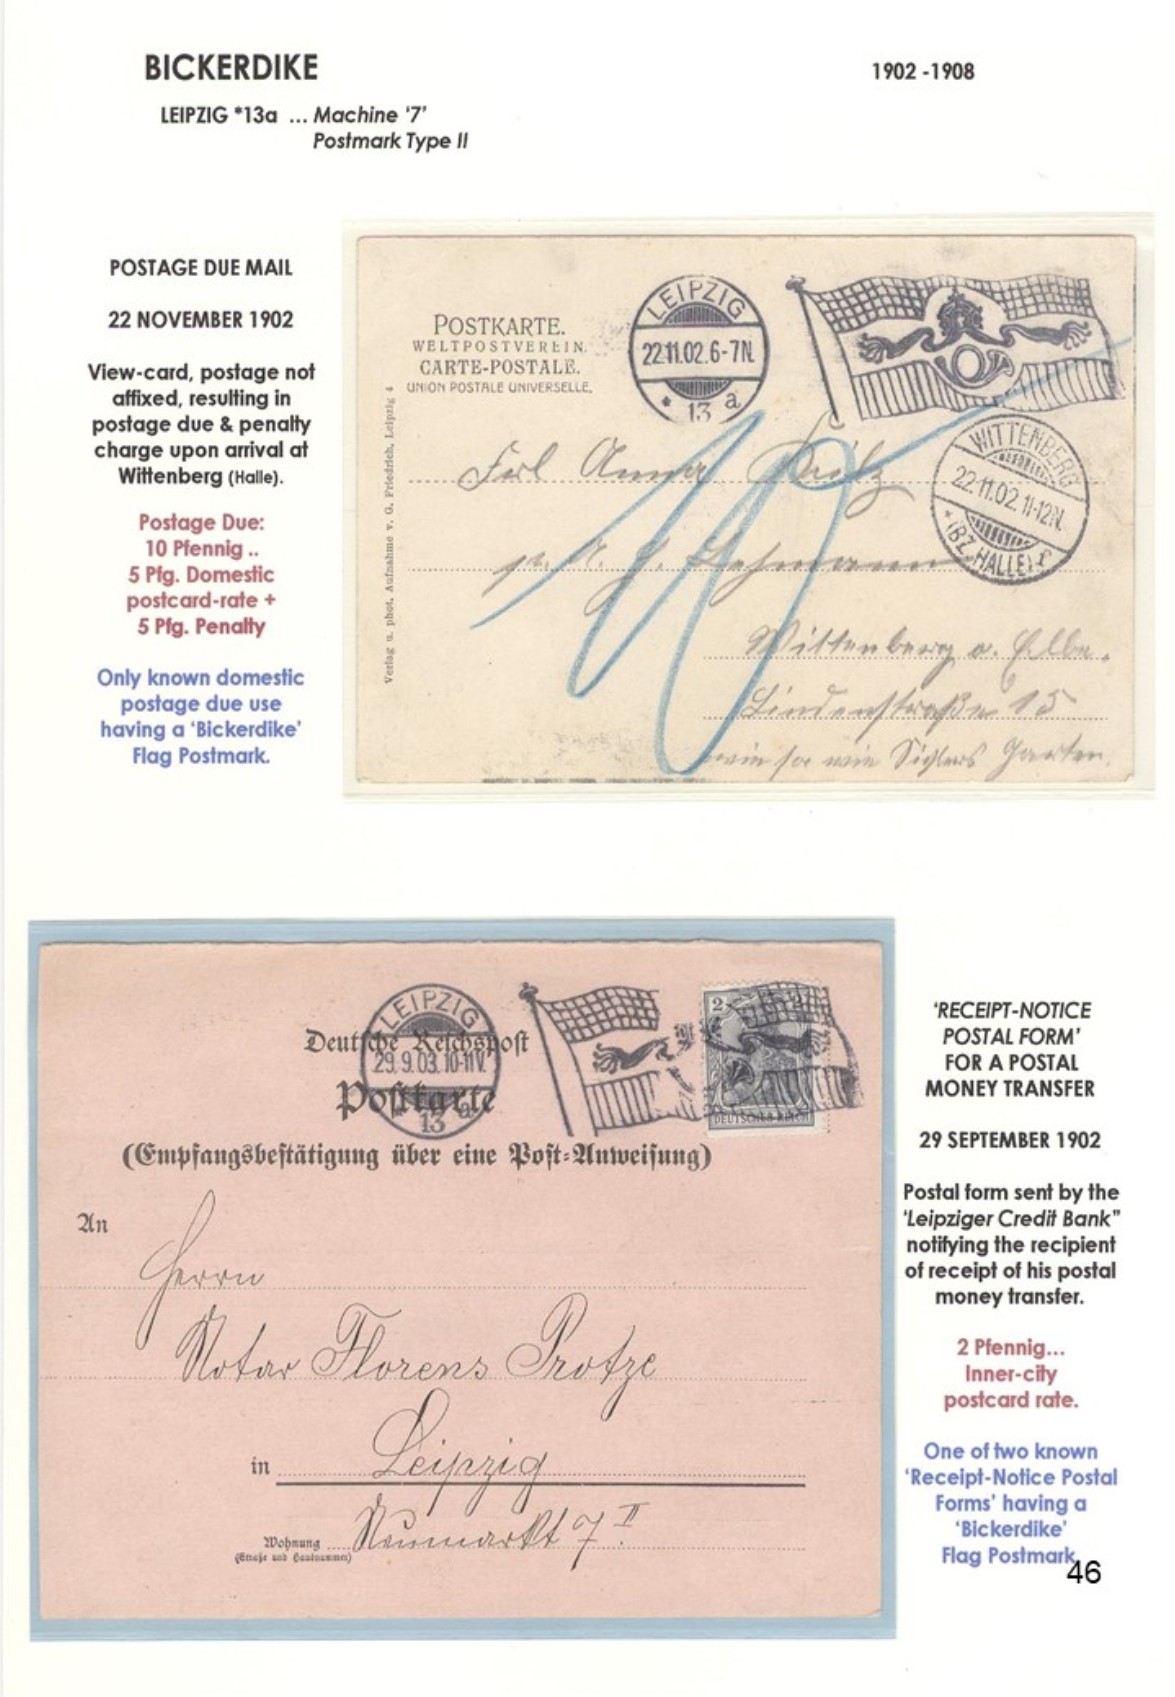 BICKERDIKE
1902 -1908
LEIPZIG *13a ... Machine ‘7’
Postmark Type II
POSTAGE DUE MAIL
22 NOVEMBER 1902
View-card, postage not
affixed, resulting in
postage due & penalty
charge upon arrival at
Wittenberg (Halle).
Postage Due:
10 Pfennig ..
5 Pfg. Domestic
postcard-rate +
5 Pfg. Penalty
Only known domestic
postage due use
having a ‘Bickerdike’
Flag Postmark.
POSTKARTE.
WELTPOSTVEREIN.
CARTE-POSTALE.
UNION POSTALE UNIVERSELLE.
Verlag u. phot. Aufnahme v. G. Friedrich, Leipzig 4
LEIPZIG
22.11.02.6-7N.
* 13 a
WITTENBERG
22.11.02.11-12N.
* (BZ.HALLE) f
10
Frl Anna
p. A. G. Lehmann
Wittenberg a. Elbe.
Lindenstraße 15
Garten.
LEIPZIG
29.9.03.10-11V.
13 a
2
DEUTSCHES REICH
Deutsche Reichspost
Postkarte
(Empfangsbestätigung über eine Post-Anweisung)
An
Herrn
Notar Florens Protze
in Leipzig
Wohnung Neumarkt 7 II.
(Straße und Hausnummer)
‘RECEIPT-NOTICE
POSTAL FORM’
FOR A POSTAL
MONEY TRANSFER
29 SEPTEMBER 1902
Postal form sent by the
‘Leipziger Credit Bank”
notifying the recipient
of receipt of his postal
money transfer.
2 Pfennig...
Inner-city
postcard rate.
One of two known
‘Receipt-Notice Postal
Forms’ having a
‘Bickerdike’
Flag Postmark.
46